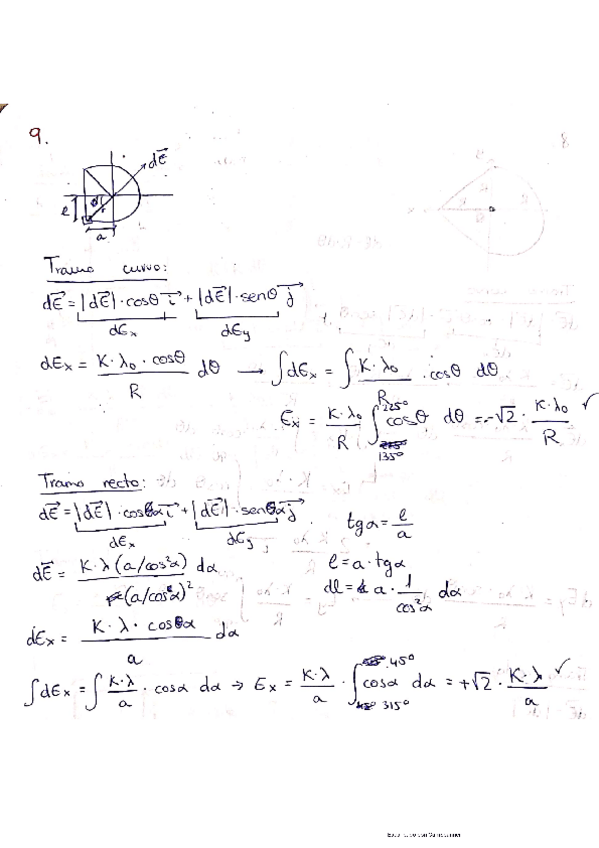 9.
dE⃗
l
θ
r
a
Tramo curvo:
dE⃗ = |dE⃗|·cosθ i⃗ + |dE⃗|·senθ j⃗
dEx dEy
dEx = K·λ₀·cosθ / R dθ → ∫dEx = ∫ K·λ₀ / R ·cosθ dθ
Ex = K·λ₀ / R ∫ 225° 135° cosθ dθ = -√2 · K·λ₀ / R ✓
Tramo recto:
dE⃗ = |dE⃗|·cosα i⃗ + |dE⃗|·senα j⃗
dEx dEy
tgα = l / a
dE⃗ = K·λ(a/cos²α) dα / (a/cosα)²
l = a·tgα
dl = a · 1 / cos²α dα
dEx = K·λ·cosα / a dα
∫dEx = ∫ K·λ / a · cosα dα → Ex = K·λ / a · ∫ 45° 315° cosα dα = +√2 · K·λ / a ✓